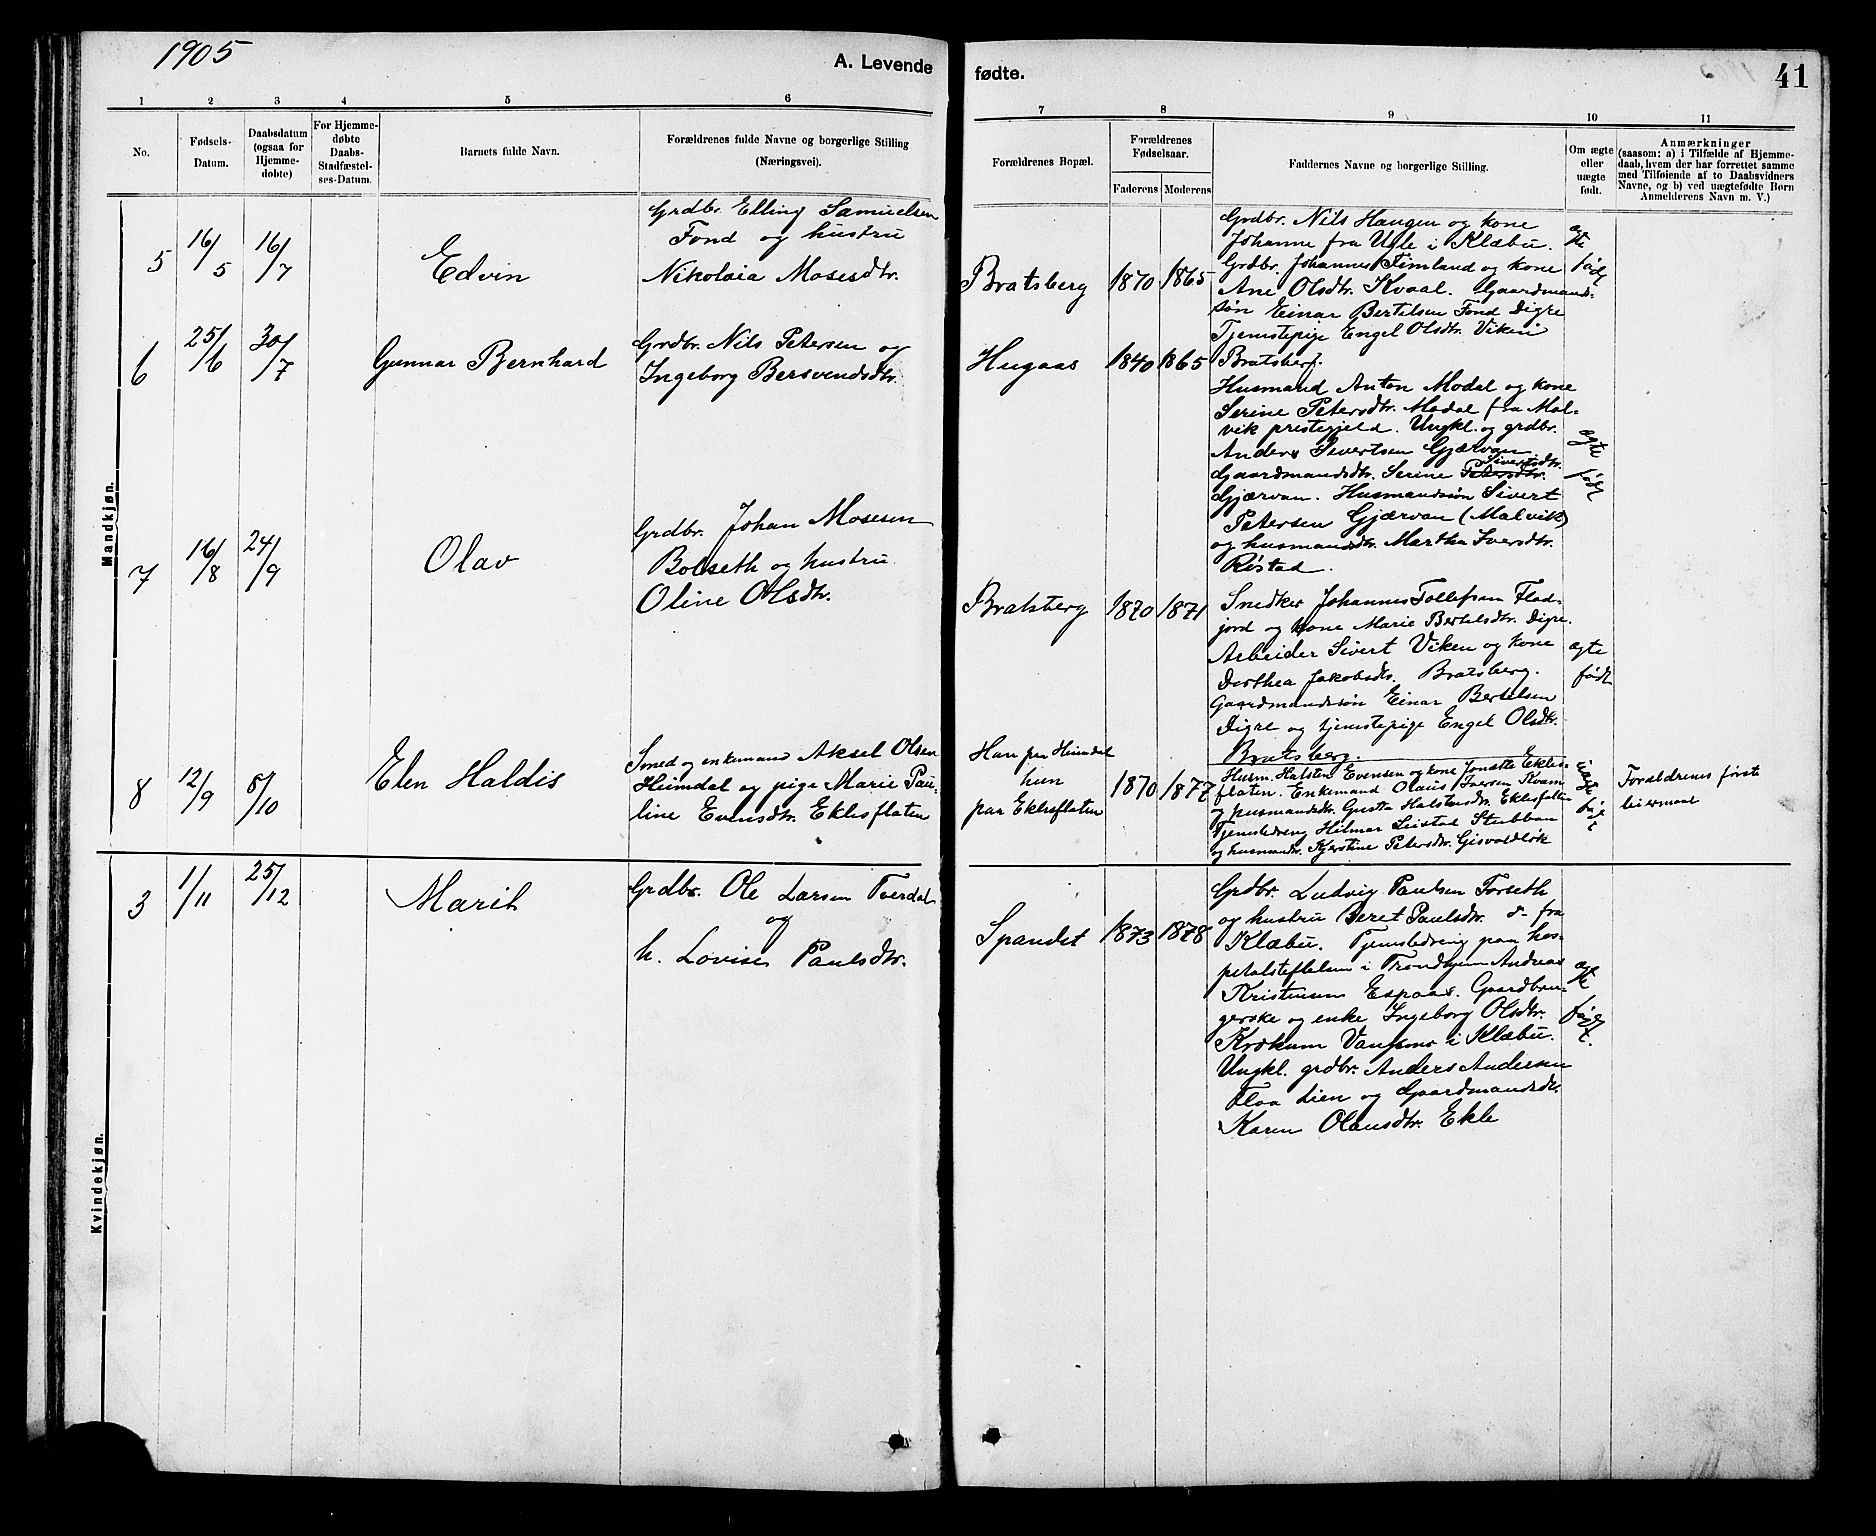 1905
A. Levende
fødte.
41
1 2 3 4 5 6 7 8 9 10 11
No.
Fødsels-
Datum.
Daabsdatum
(ogsaa for
Hjemme-
døbte)
For Hjemme-
døbte
Daabs-
Stadfæstel-
ses-Datum.
Barnets fulde Navn.
Forældrenes fulde Navne og borgerlige Stilling
(Næringsvei).
Forældrenes Bopæl.
Forældrenes
Fødselsaar.
Faderens Moderens
Faddernes Navne og borgerlige Stilling.
Om ægte
eller
uægte
født.
Anmærkninger
(saasom: a) i Tilfælde af Hjemme-
daab, hvem der har forrettet samme
med Tilføiende af to Daabsvidners
Navne, og b) ved uægtefødte Børn
Anmelderens Navn m. V.)
Mandkjøn.
5
16/5
16/7
Edvin
Grdbr. Elling Samuelsen
Fond og hustru
Nikolaia Mosesdtr.
Bratsberg
1870 1865
Grdbr. Nils Haugen og kone
Johanne fra Ugle i Klæbu.
Grdbr. Johannes Simland og kone
Ane Olsdtr. Kvaal. Gaardmands-
søn Einar Bertelsen Fond Digre
Tjenstepige Engel Olsdtr. Viken
Bratsberg.
ægte
født
6
25/6
30/7
Gunnar Bernhard
Grdbr. Nils Petersen og
Ingeborg Bersvendsdtr.
Hugaas
1840 1865
Husmand Anton Modal og kone
Serine Petersdtr. Modal fra Mal-
vik prestegjeld. Ungkl. og grdbr.
Anders Sivertsen Gjærvan
Gaardmandsdtr. Serine Petersdtr. Sivertsdtr.
Gjærvan. Husmandssøn Sivert
Petersen Gjærvan (Malvik)
og husmandsdtr. Martha Iversdtr.
Røstad.
ægte
født
7
16/8
24/9
Olav
Grdbr. Johan Mosesen
Bolseth og hustru
Oline Olsdtr.
Bratsberg
1870 1871
Snedker Johannes Tollefsen Flad-
jord og kone Marie Bertelsdtr. Digre.
Arbeider Sivert Viken og kone
Dorthea Jakobsdtr. Bratsberg.
Gaardmandssøn Einar Bertelsen
Digre og tjenstepige Engel Olsdtr.
Bratsberg.
ægte
født
8
12/9
8/10
Elen Haldis
Smed og enkemand Aksel Olsen
Heimdal og pige Marie Pau-
line Evensdtr. Eklesflaten
Han paa Heimdal
hun
paa Eklesflaten
1870 1877
Husm. Halsten Evensen og kone Jonette Ekles-
flaten. Enkemand Olaus Iversen Kvam
og husmandsdtr. Gusta Halstensdtr. Eklesflaten
Tjenstedreng Hilmar Sivstad Stubban
og husmandsdtr. Kjerstine Petersdtr.
født
Forældrenes første
leiermaal
Kvindekjøn.
3
1/11
25/12
Marit
Grdbr. Ole Larsen Tverdal
og
h. Lovise Paulsdtr.
Spandet
1873 1878
Grdbr. Ludvig Paulsen Forseth
og hustru Beret Paulsdtr. d- fra
Klæbu. Tjenstedreng paa hos-
pitalsløkken i Trondhjem Andreas
Kristensen Espaas. Gaardbru-
gerske og enke Ingeborg Olsdtr.
Krokum i Klæbu.
Ungkl. grdbr. Anders Andersen
Floa Lien og Gaardmandsdtr.
Karen Olausdtr. Ekle
ægte
født.